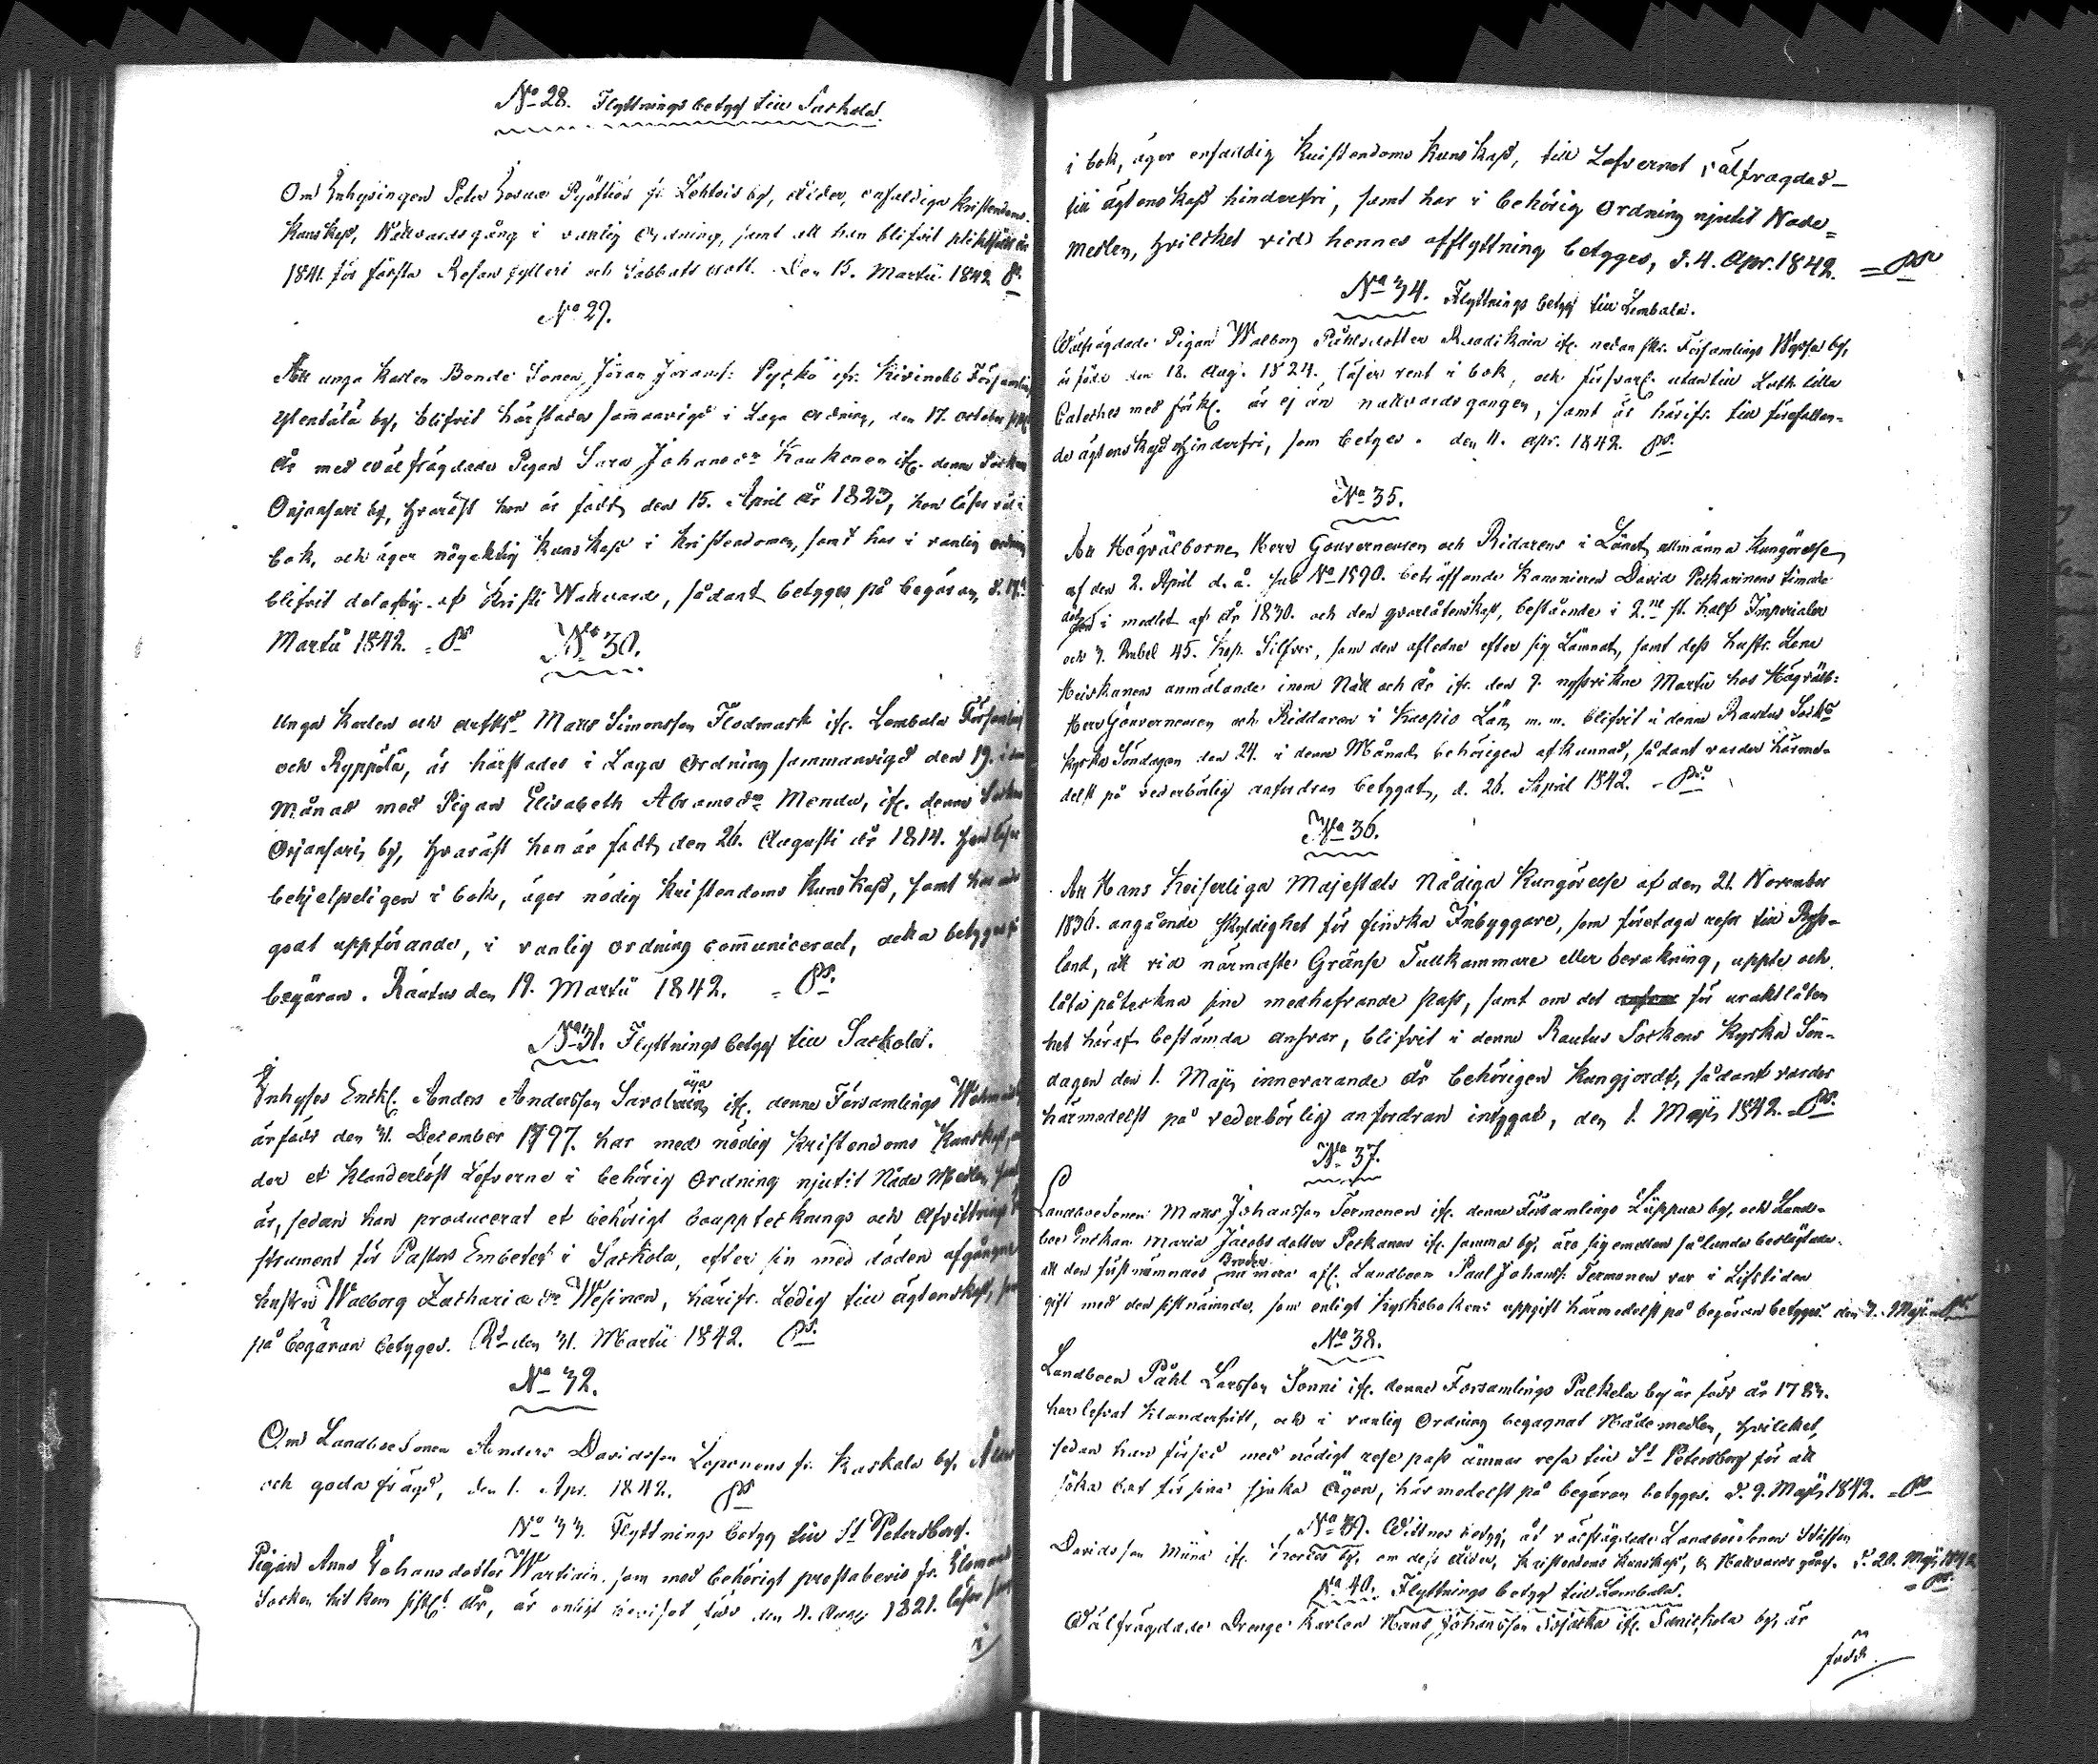 No 28. Flyttnings betyg till Sackola.
Om Inhysingen Peter Pyöttiös fr. Lohtois by, ålder, enfaldiga kristendoms
kunskap, Nattvardsgång i vanlig ordning, samt att han blifvit
1841. för första Resan fylleri och Sabbatsbrott. Den 15. Martii 1842 Ps.
No 29.
Att unga Karlen Bonde Sonen Jöran Jöransf: Pyckö ifr. Kivinebb Församling
by, blifvit härstädes sammanvigd i Laga ordning, den 17. october
år med wälfrägdade Pigan Sara Johansdr Kaukonen ifr. denne Socken
Orjansari by, hvaräst hon är född den 15. April år 1823, hon läser väl i
bok, och äger nögaktig kunskap i kristendomen, samt har i vanlig ordning
blifvit delaftig af Kristi Nattvard, sådant betyges på begäran, d. 17.
Martii 1842. Ps No 30.
Unga Karlen och Mats Simonsson Flodmark ifr. Lembala Församling
och Ryppölä, är härstädes i Laga ordning sammanvigd den 19. i denne
Månad med Pigan Elisabeth Abramsdr Mendu, ifr. denne Socken
Orjansari by, hvaräst hon är född den 26. Augusti år 1814. hon läser
behjelpeligen i bok, äger nödig kristendoms kunskap, samt har med
godt uppförande, i vanlig ordning communicerad, detta betyges på
begäran. Räutus den 19. Martii 1842. Ps.
No 31. Flyttnings betyg till Sackola.
Inhyses Enkl. Anders Andersson ifr. denne Församlings
är född den 31. December 1797. har med nödig kristendoms kunskap,
der et klanderlöst Lefverne i behörig Ordning njutit Nåde Medlen, samt
är, sedan han producerat et behörigt bouppteknings och Afvittrings
strument för Pastors Embetet i Sackola, efter sin med döden afgångne
hustru Walborg Zacharia dr Wesinen, härifr. Ledig till ägtenskap, som
på begäran betyges. Rs den 31. Martii 1842. Ps.
No 32.
Om Landboe Sonen Anders Davidsson Loponens fr. Kaskala by,
och goda frägd, den 1. Apr. 1842. Ps
No 33. Flyttnings betyg till St Petersborg.
Pigan Anna Johans dotter Wartiain, som med behörigt prestabevis fr.
Socken hit kom sistl. år, är enligt beviset född den 4. 1821. läser
i
i bok, äger enfaldig Kristendoms Kunskap, till Lefvernet välfragdad
till ägtenskap hinderfri, samt har i behörig ordning njutit Nåde=
medlen, hvilcket vid hennes afflyttning betyges, d. 4. Apr. 1842. = Ps
No 34. Flyttnings betyg till Lembala.
Wälfrägdade Pigan Walborg Påhlsdotter Raadikain ifr. nedan skr. Församlings by,
är född den 18. Aug. 1824. läser rent i bok, och utantill Luth. lilla
Cateches med förkl. är ej än nattvardsgången, samt är härifr. till förefallan-
de ägtenskap hinderfri, som betyges. den 11. apr. 1842. Ps.
No 35.
Att Högvälborne Herr Gouverneuren och Ridarens i Länet allmänna Kungörelse
af den 2. April d. å. sub No 1590. beträffande Kanonieren David Peskarinens timade
död i medlet af år 1830. och den qvarlåtenskap, bestående i 2.ne st. half Imperialer
och 3. Rubel 45. Kop. Silfver, som den aflidne efter sig Lämnat, samt dess hustr. Lena
Heiskanens anmälande inom Natt och år ifr. den 9. Martii hos Högvälb:
Herr Gouverneuren och Riddaren i Kuopio Län, m. m. blifvit i denne Rautus Sockns
kyrka Söndagen den 24. i denne Månad behörigen afkunnad, sådant varder härme-
delst på vederbörlig anfordran betygat, d. 26. April 1842. - Ps.
No 36.
Att Hans Keiserliga Majestäts Nådiga Kungörelse af den 21. November
1836. angående skyldighet för finska Inbyggare, som företaga resa till Rys-
land, att vid närmaste Gränse Tullkammare eller bevakning, uppte och
låta påteckna sine medhafvande pass, samt om det för uraktlåten
het häraf bestämda ansvar, blifvit i denne Rautus Sockens kyrka Sön-
dagen den 1. Maji innevarande år behörigen kungjordt, sådant varder
härmedelst på vederbörlig anfordran intygat, den 1. Maji 1842. - Ps.
No 37.
Landboe Sonen Mats Johansson Termonen ifr. denne Församlings Lippua by, och Land-
boe Enkan Maria Jacobs dotter Peskanen ifr. samma by, äro sig emellan sålunda beslägtade.
att den förstnämnads Broder nu mera afl. Landboen Paul Johansf. Termonen var i Lifstiden
gift med den sistnämnda, som enligt kyrkobokens uppgift härmedelst på begäran betyges. den 3. Maji Ps.
No 38.
Landboen Påhl Larsson Sonni ifr. denne Församlings Palkela by är född år 1783.
har lefvat klanderfritt, och i vanlig Ordning begagnat Nådemedlen, hvilcket,
sedan han försed med nödigt rese pass ämnar resa till St Petersborg för att
söka bot för sina sjuka ögon, härmedelst på begäran betyges. d. 9. Maji 1842. - Ps
No 39. Wittnes betyg, åt välfrägdade Landboe Sonen Staffan
Davidsson Miinä ifr. by, om dess ålder, Kristendoms kunskap, & Nattvards gång. d. 20. Maji 1842
No 40. Flyttnings betyg till Lembala. = Ps.
Wälfrägdade Drenge Karlen Hans Johansson ifr. by, är
född.